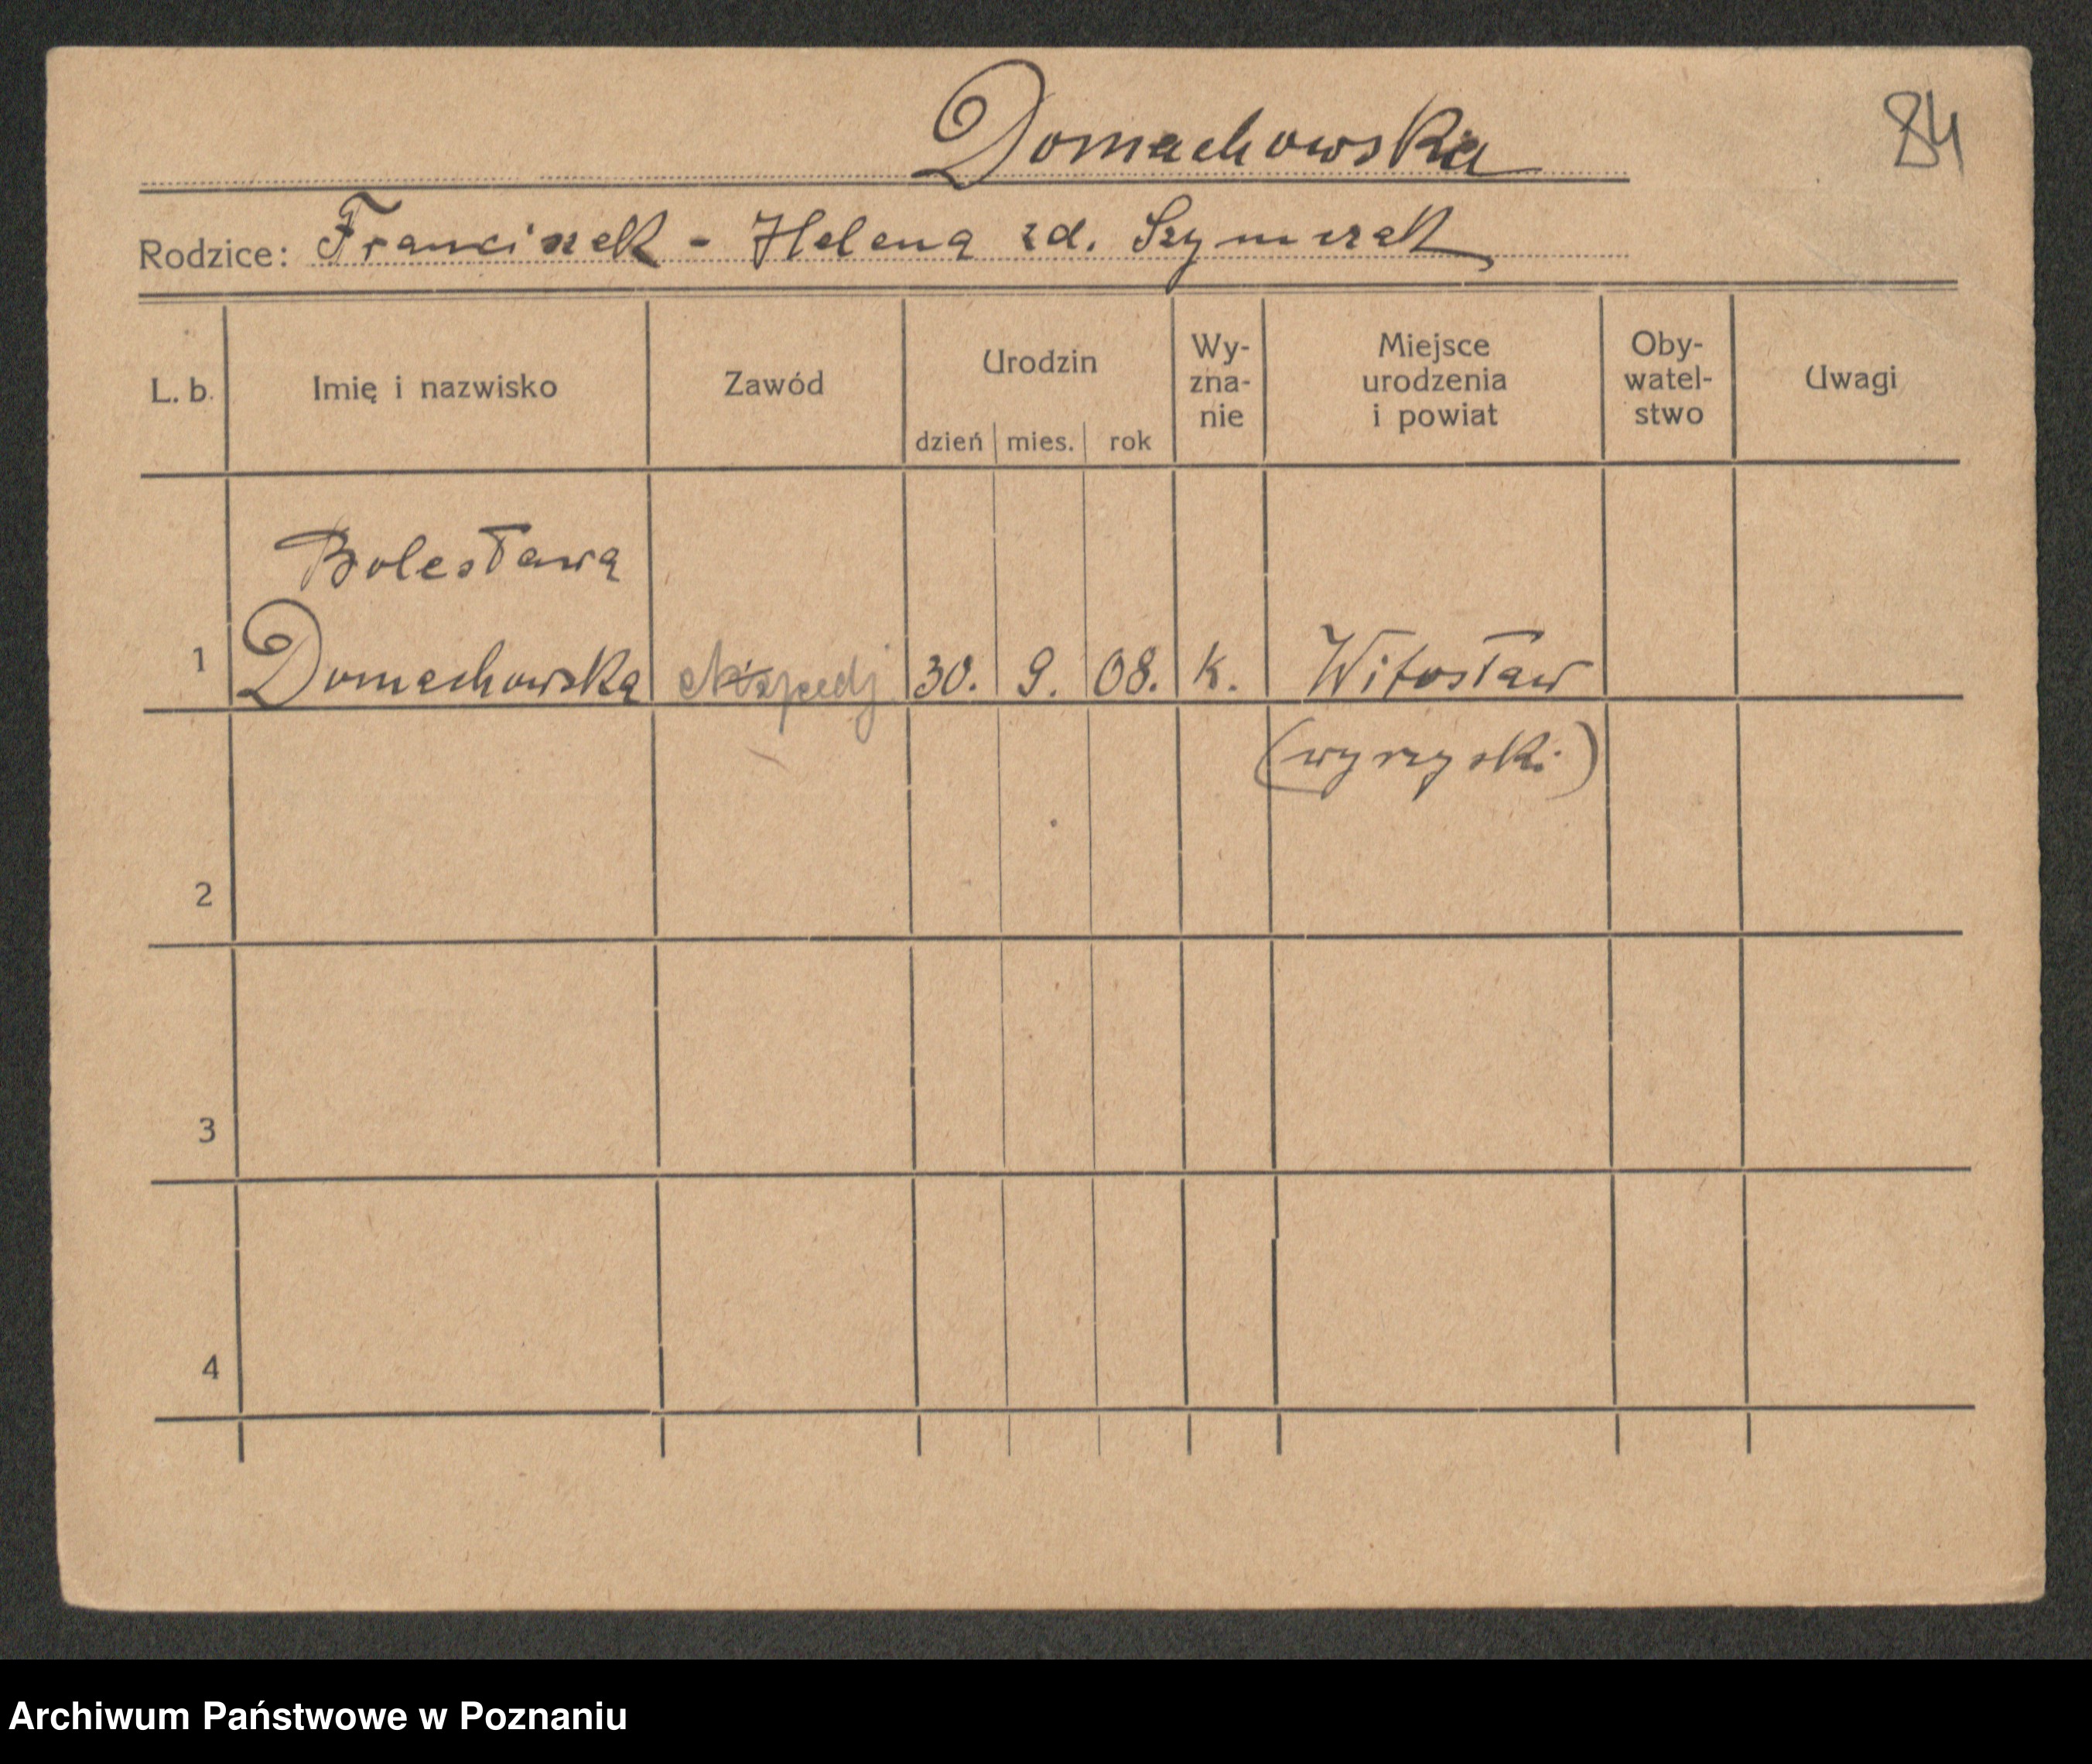 Domachowska
84
Rodzice: Franciszek - Helena zd. Szymczak
L. b.
Imię i nazwisko
Zawód
Urodzin
dzień mies. rok
Wy-
zna-
nie
Miejsce
urodzenia
i powiat
Oby-
watel-
stwo
Uwagi
Bolesława
1 Domachowska 30. 9. 08. k. Witosław
(wyrzyski)
2
3
4
Archiwum Państwowe w Poznaniu